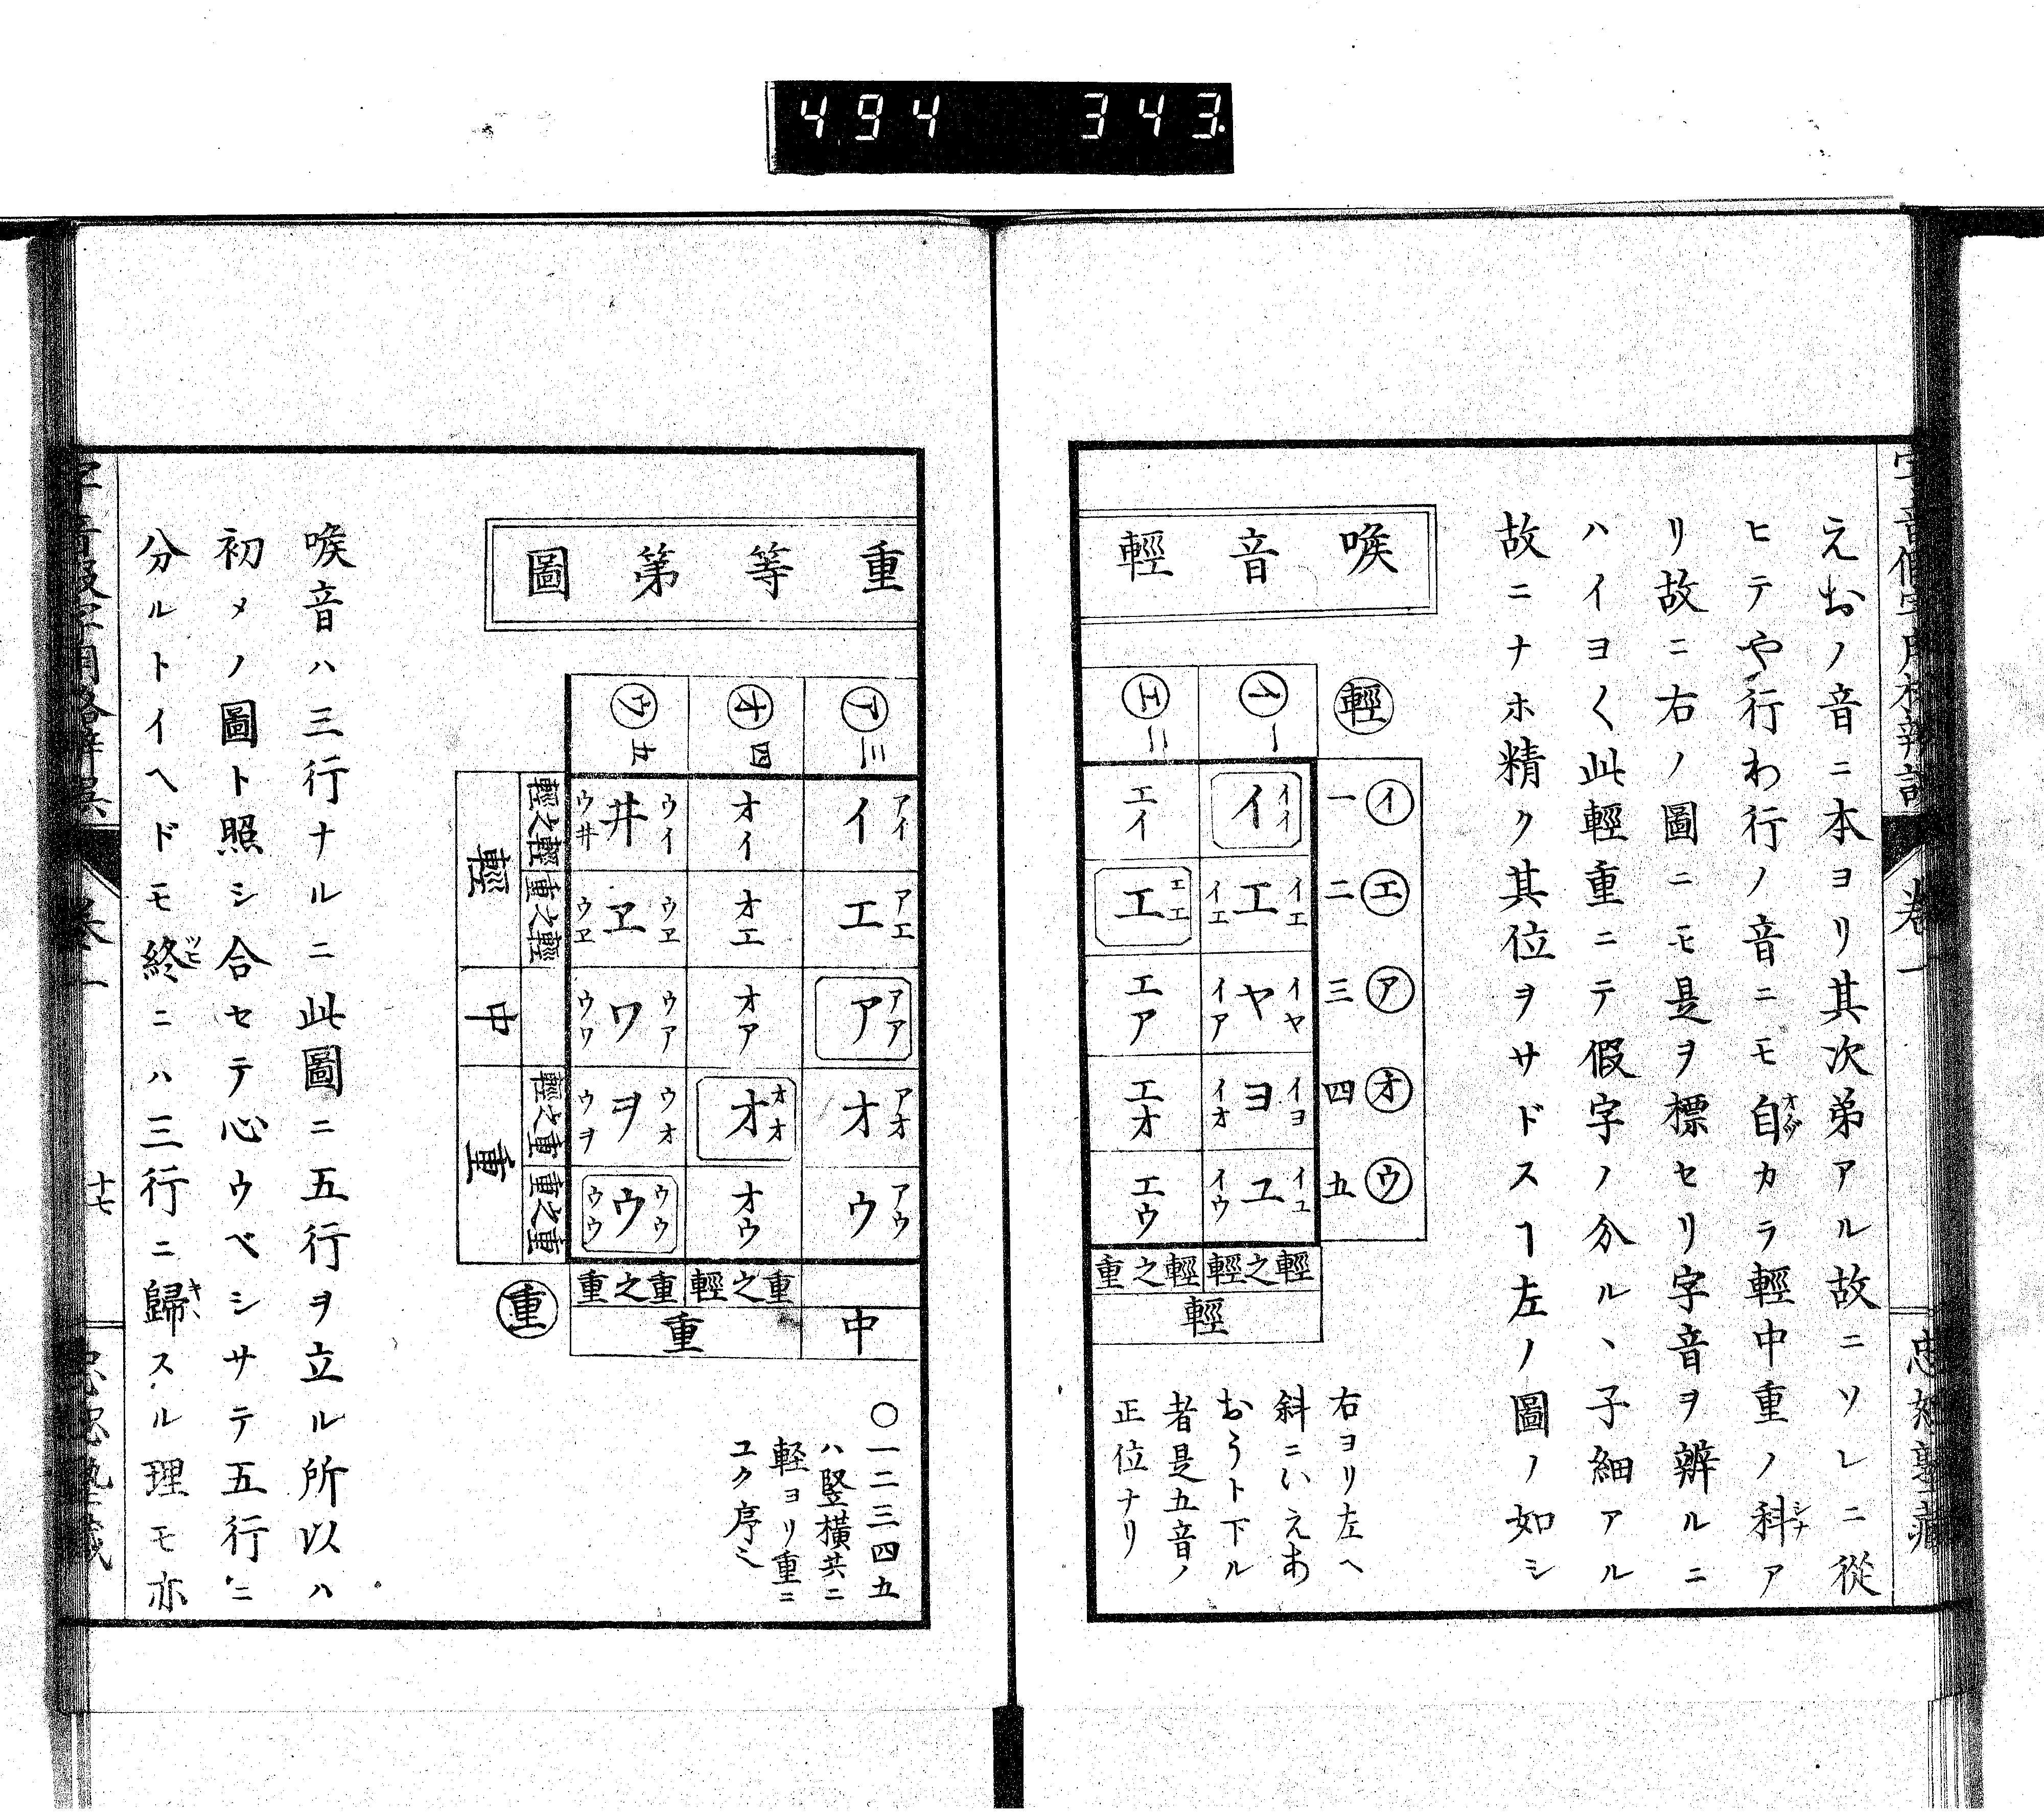 494 343
えおノ音ニ本ヨリ其次第アル故ニソレニ從
ヒテや行わ行ノ音ニモ自カラ輕中重ノ科ア
リ故ニ右ノ圖ニモ是ヲ標セリ字音ヲ辨ルニ
ハイヨ〱此輕重ニテ假字ノ分ル丶子細アル
故ニナホ精ク其位ヲサドスヿ左ノ圖ノ如シ
喉音輕
重等第圖
輕
㋑ 一 ㋓ 二 ㋐ 三 ㋔ 四 ㋒ 五
㋑ 一
イイ イ
イエ エ イエ
イヤ ヤ イア
イヨ ヨ イオ
イユ ユ イウ
輕之輕
㋓ 二
エイ
エエ エ
エア
エオ
エウ
輕之重
輕
右ヨリ左ヘ
斜ニいえあ
おうト下ル
者是五音ノ
正位ナリ
㋐ 三
アイ イ
アエ エ
アア ア
アオ オ
アウ ウ
中
㋔ 四
オイ
オエ
オア
オオ オ
オウ
重之輕
㋒ 五
ウイ 井 ウ井
ウヱ ヱ ウヱ
ウア ワ ウワ
ウオ ヲ ウヲ
ウウ ウ ウウ
重之重
重
輕之輕 輕之重 重之輕 重之重
輕 中 重
重
〇一二三四五
ハ竪横共ニ
軽ヨリ重ニ
ユク序
喉音ハ三行ナルニ此圖ニ五行ヲ立ル所以ハ
初メノ圖ト照シ合セテ心ウベシサテ五行ニ
分ルトイヘドモ終ニハ三行ニ歸スル理モ亦
卷一
十七